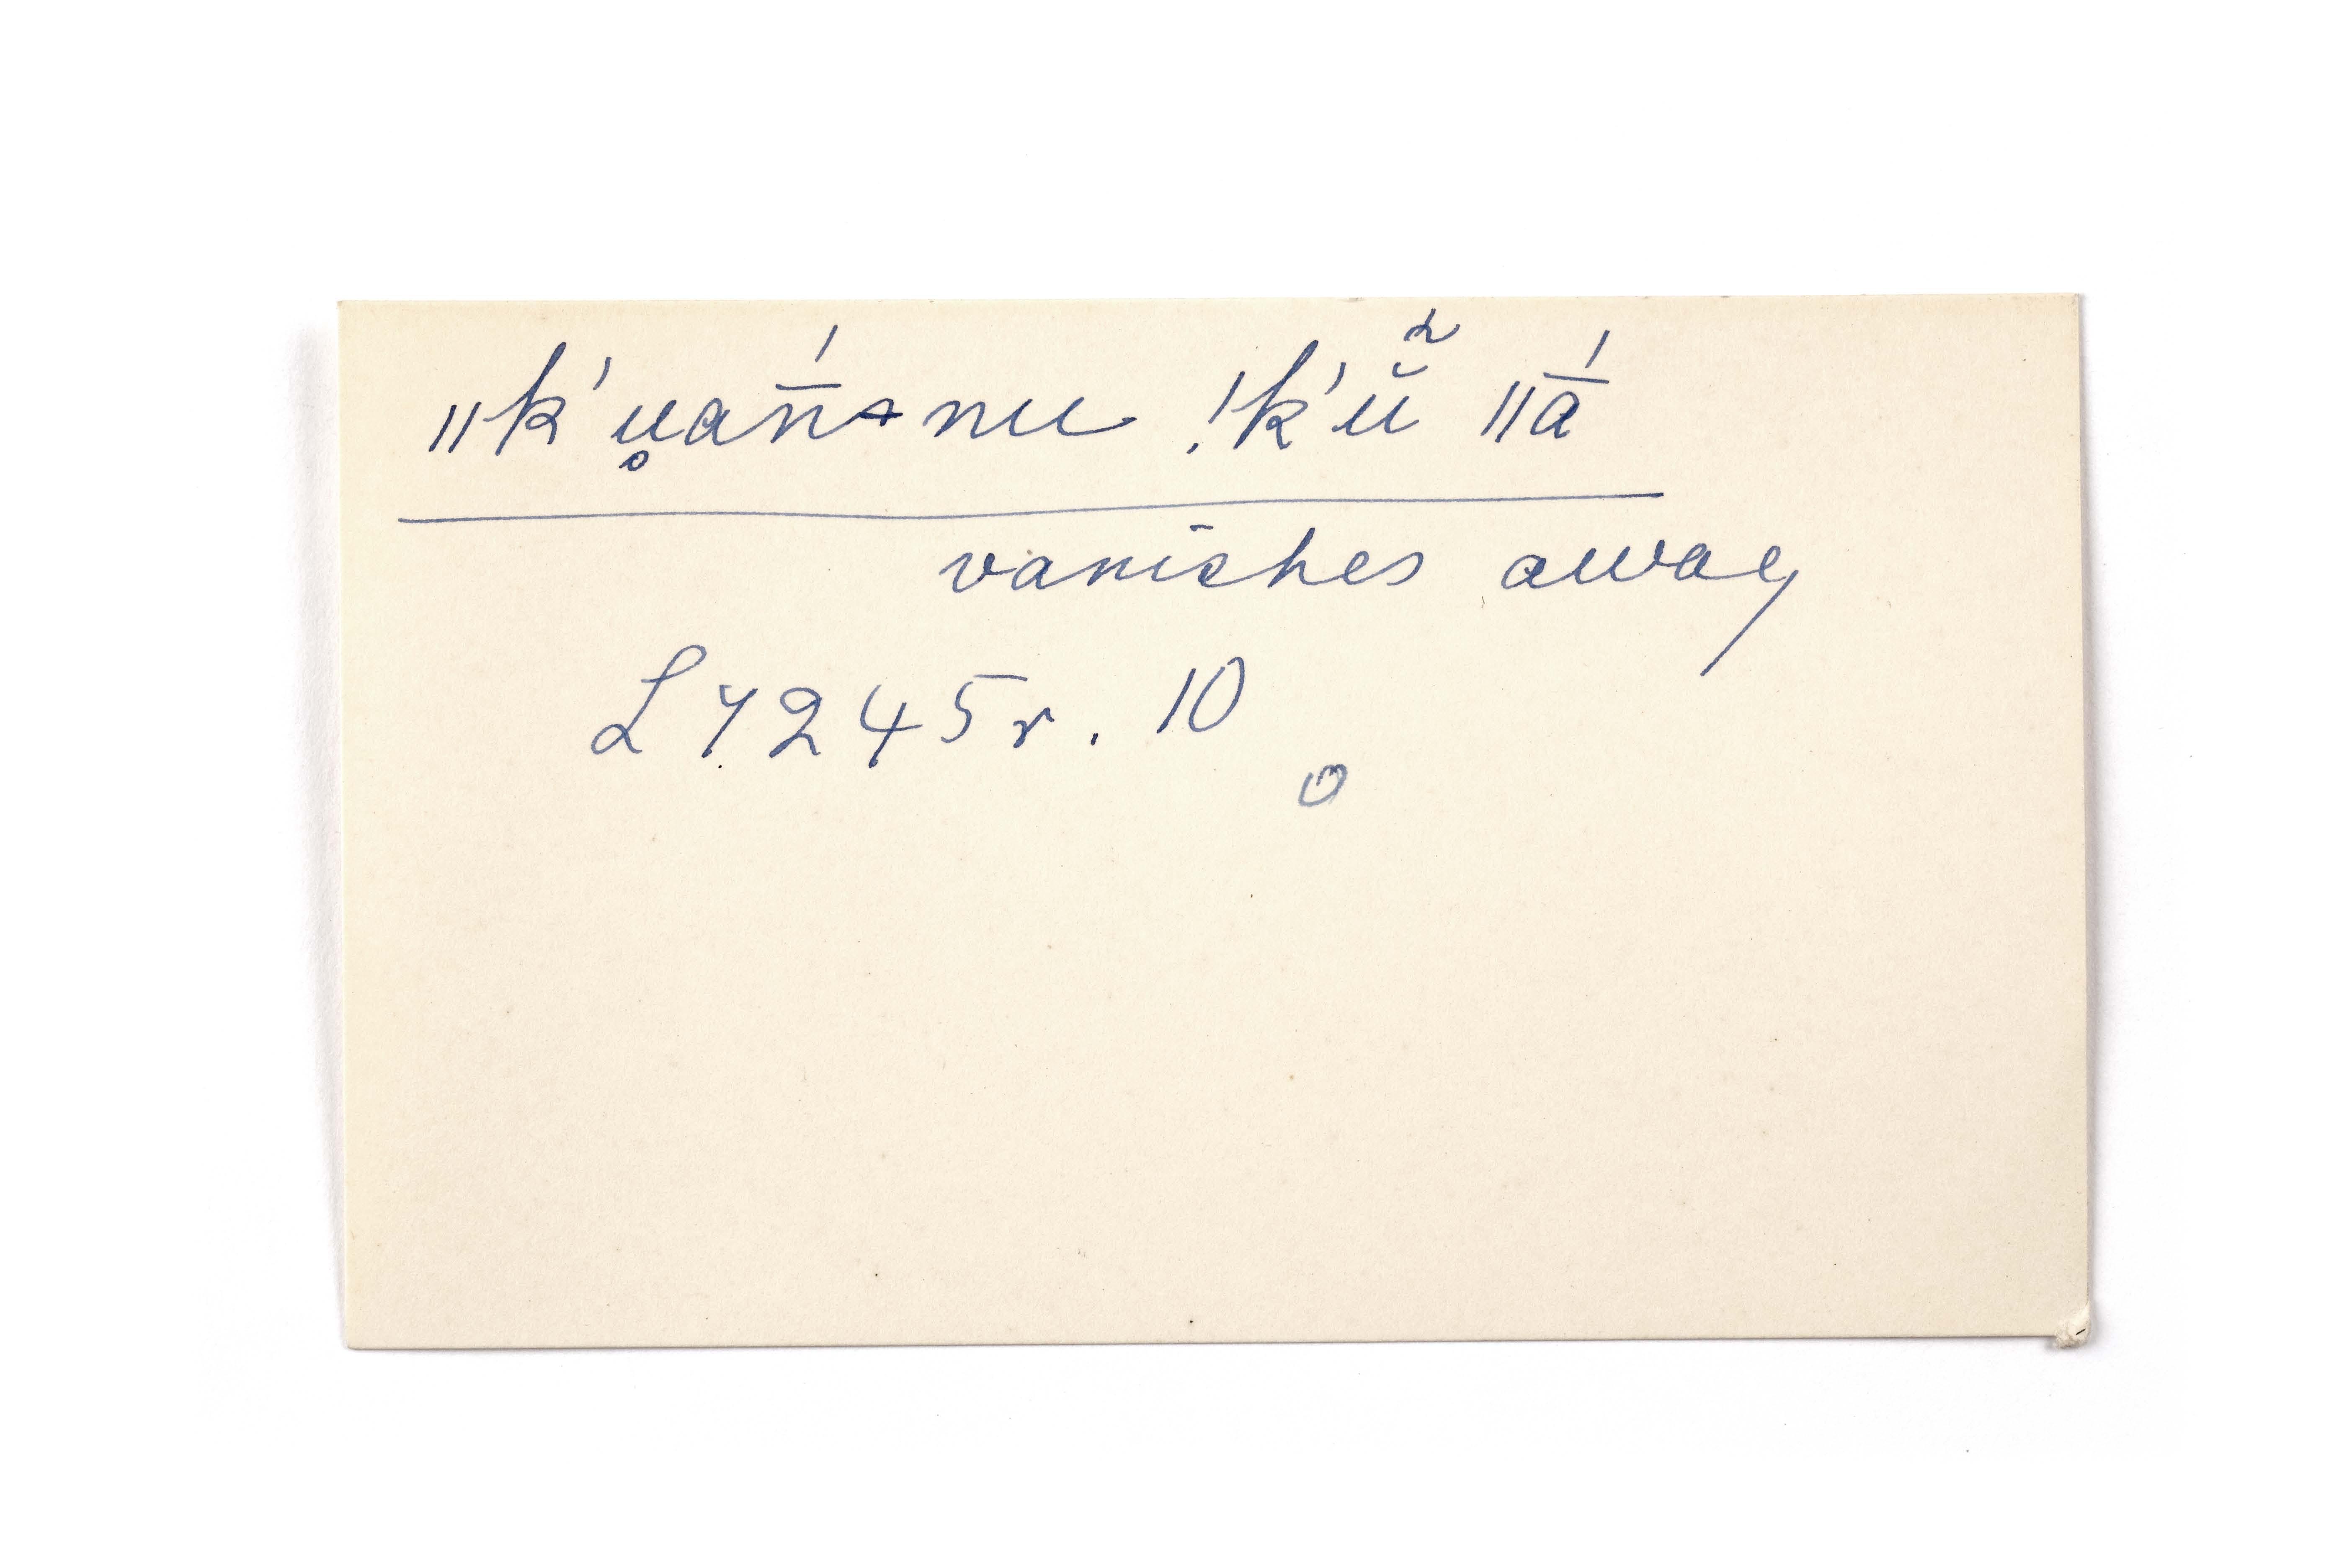 ǁk'u̥ań̄-nu !k'ŭ̃ ǁā́
vanishes away
L7245r. 10
o